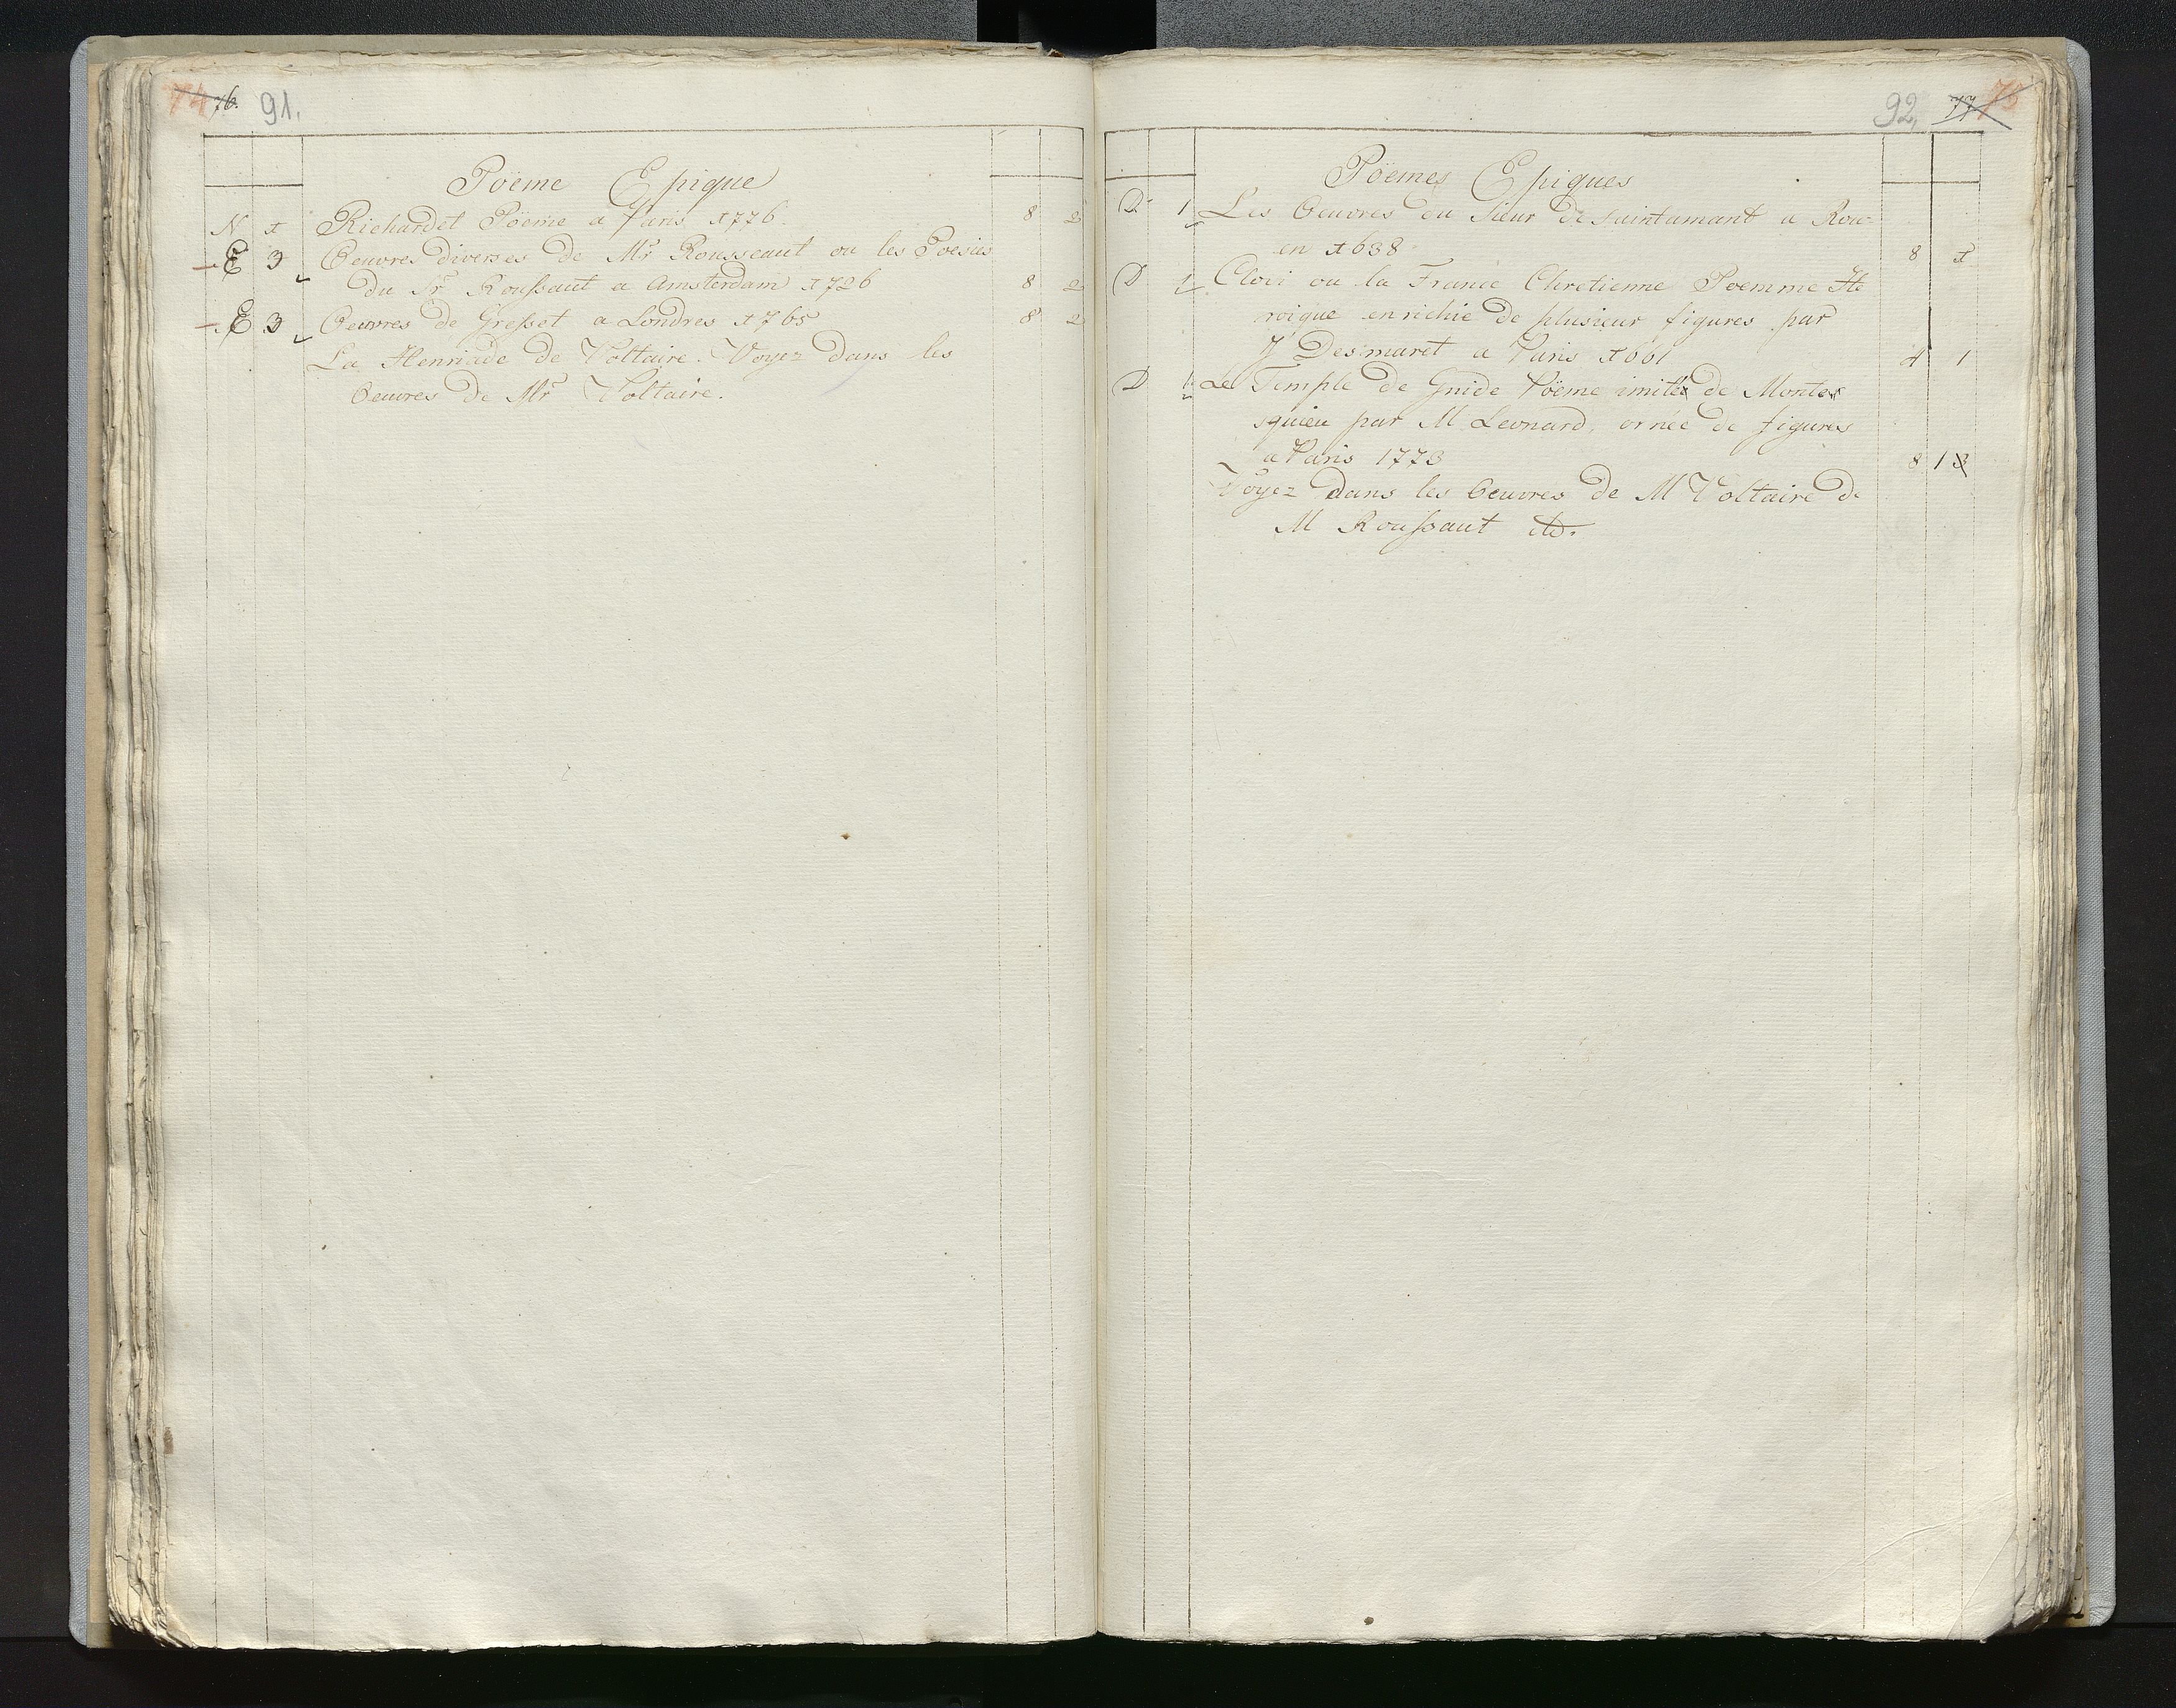 74 76. 91.
Poëme Epique
N 1 Richardet Poëme a Paris 1776. 8 2
E 3 Oeuvres diverses de Mr Rousseaut ou les Poesies
du Sr Roussaut a Amsterdam 1726 8 2
E 3 Oeuvres de Gresset a Londres 1765 8 2
La Henriade de Voltaire. Voyez dans les
Oeuvres de Mr Voltaire.
92, 77 75
Poëmes Epiques
D 1 Les Oeuvres du Sieur de Saintamant a Rou-
en 1638 8 1
D 1 Clovi ou la France Chretienne Poemme He
roique enrichie de plusieur figures par
J Desmaret a Paris 1661 4 1
D 1 Le Temple de Gnide Poëme imité de Monte
squieu par M Leonard, ornée de figures
a Paris 1773 8 1 3
Voyez dans les Oeuvres de M Voltaire de
M Roussaut etc.